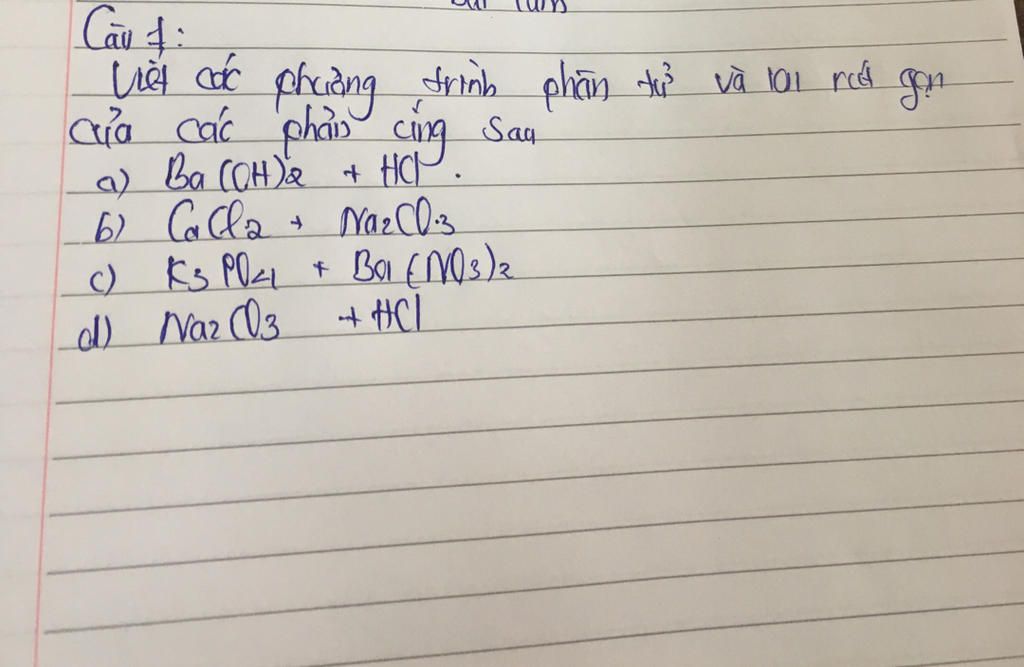 Câu 1:
Viết các phương trình phân tử và ion rút gọn
của các phản ứng sau
a) Ba(OH)2 + HCl.
b) CaCl2 + Na2CO3
c) K3PO4 + Ba(NO3)2
d) Na2CO3 + HCl